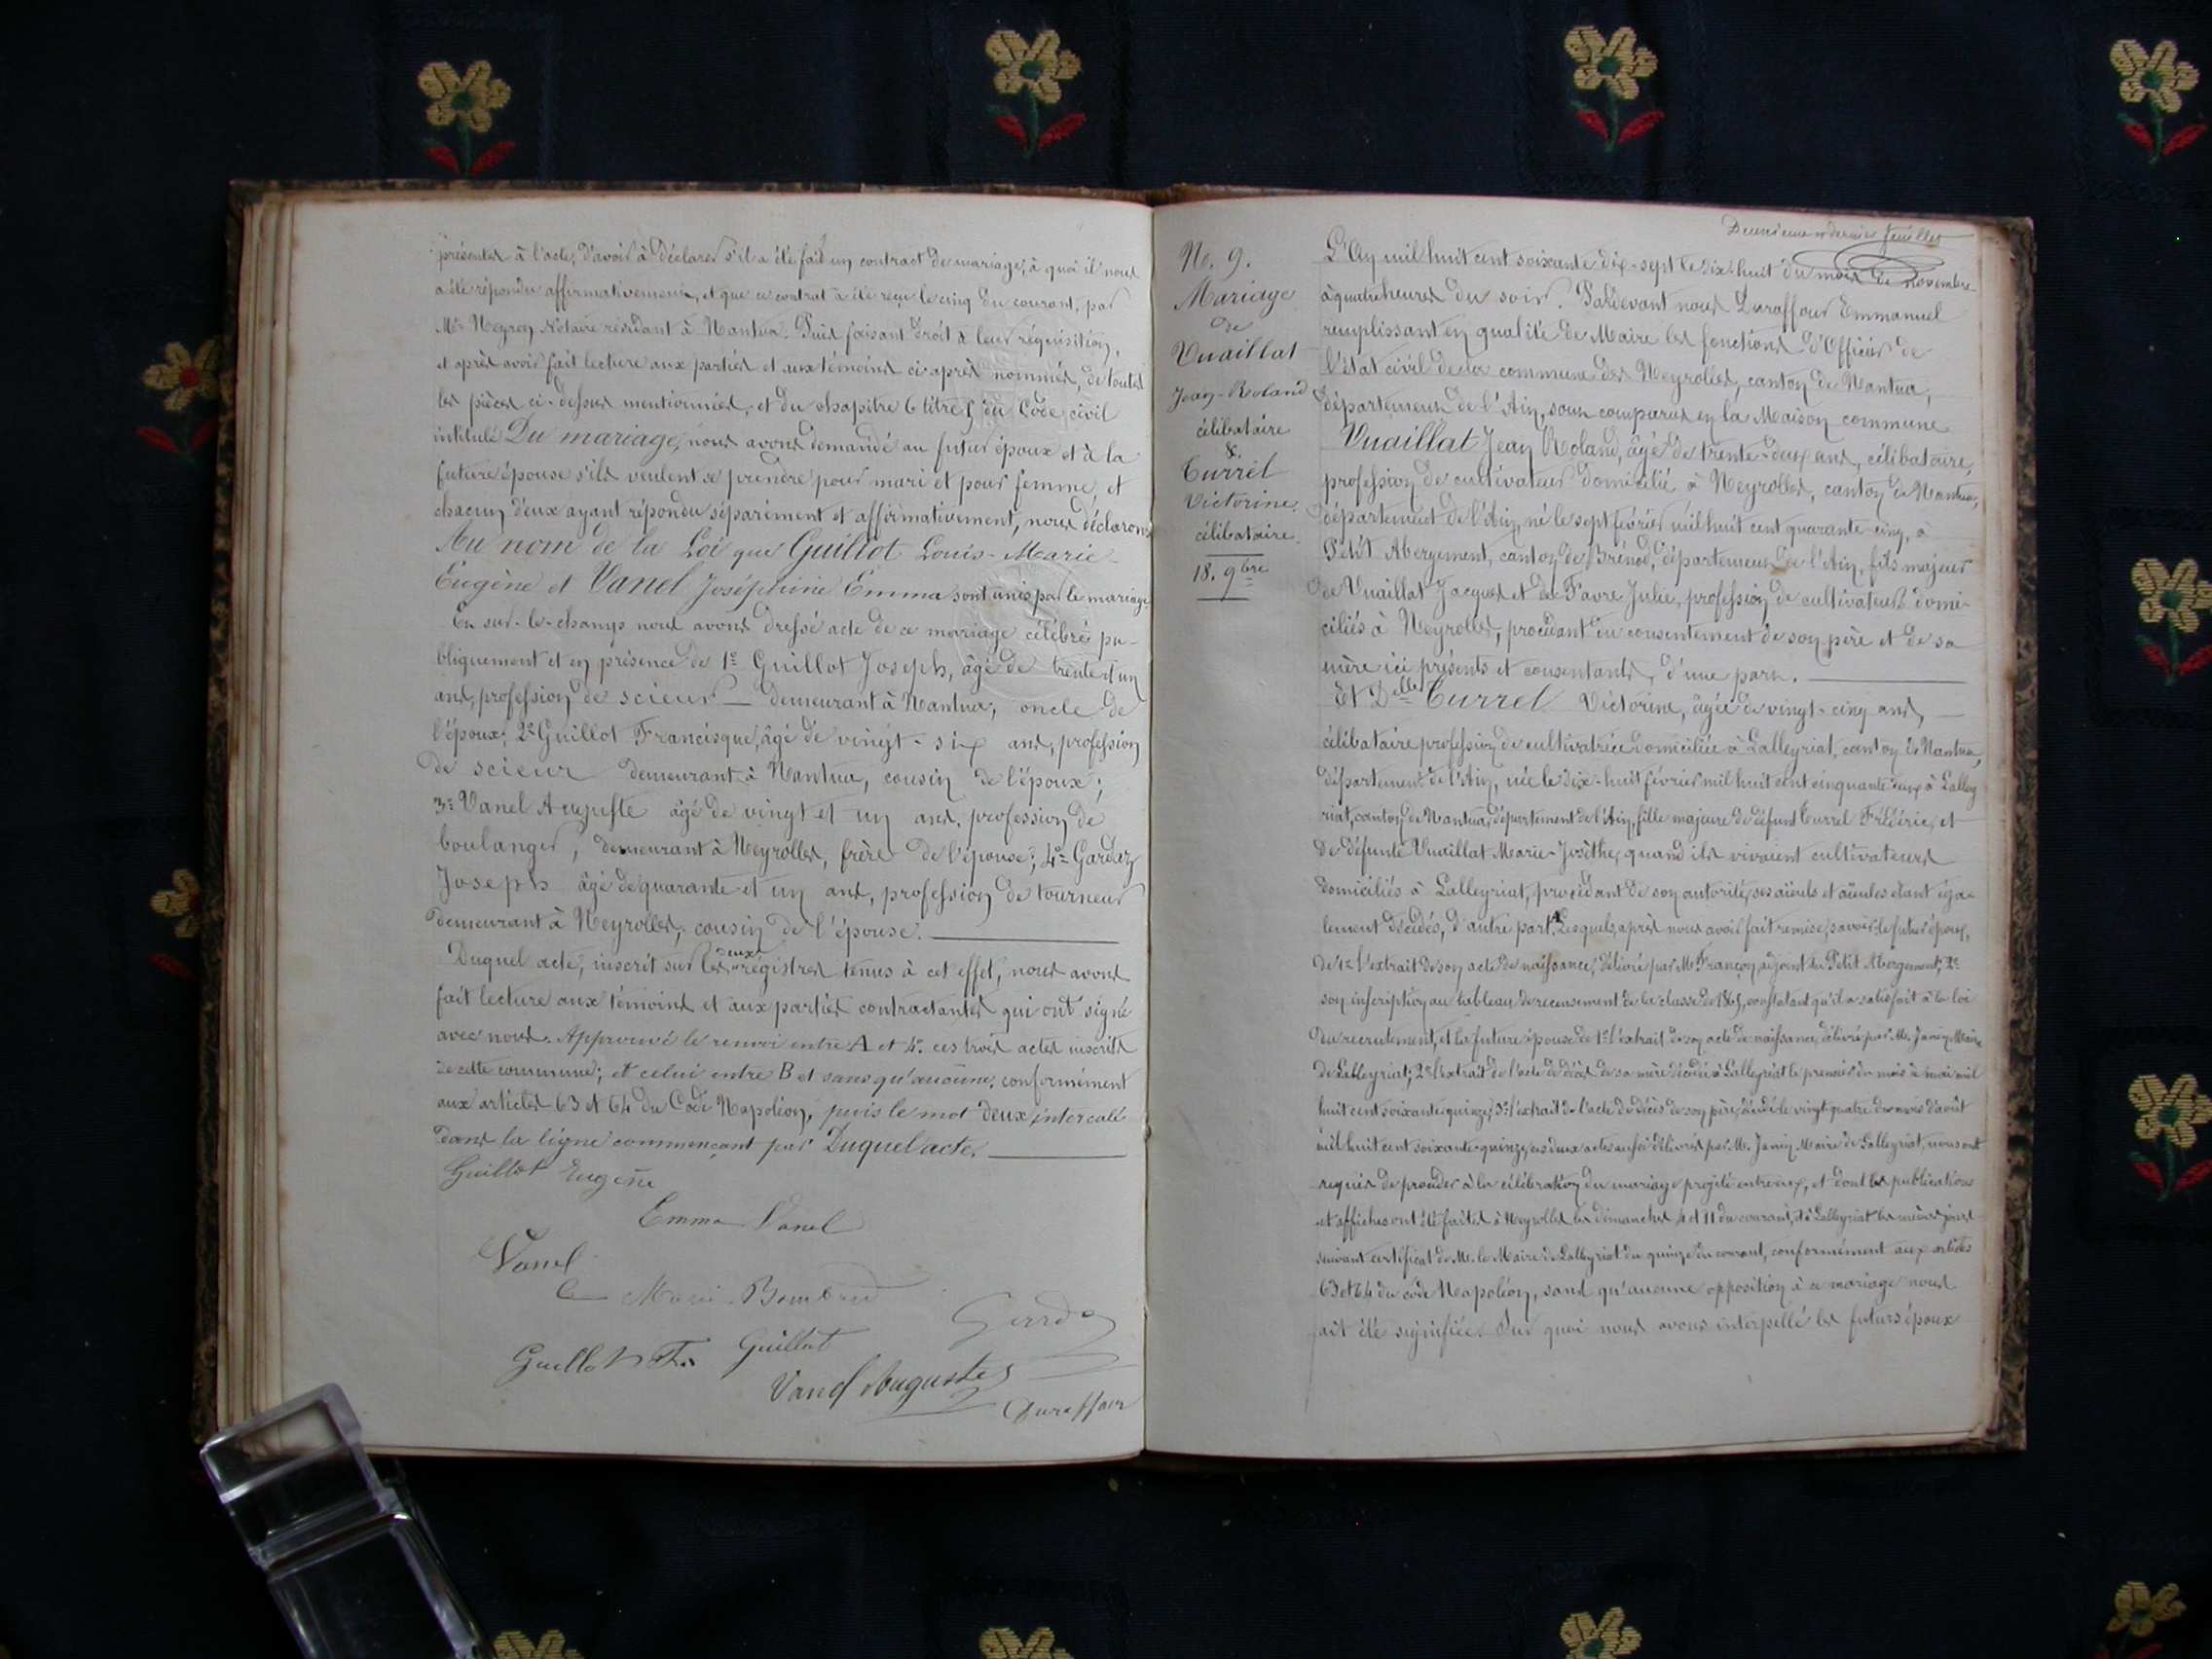 présentes à l'acte, d'avoir à déclarer s'il a été fait un contract de mariage, à quoi il nous
a été répondu affirmativement, et que ce contrat a été reçu le cinq du courant, par
Me Neyron Notaire résidant à Nantua. Puis faisant droit à leur réquisition,
et après avoir fait lecture aux parties et aux témoins ci-après nommés, de toutes
les pièces ci-dessus mentionnées, et du chapitre 6 titre 5 du Code civil
intitulé Du mariage, nous avons demandé au futur époux et à la
future épouse s'ils veulent se prendre pour mari et pour femme, et
chacun d'eux ayant répondu séparément et affirmativement, nous déclarons
Au nom de la Loi que Guillot Louis-Marie-
Eugène et Vanel Joséphine Emma sont unis par le mariage
En sur-le-champ nous avons dressé acte de ce mariage célébré pu-
bliquement et en présence de 1º Guillot Joseph, âgé de trente et un
ans, profession de scieur demeurant à Nantua, oncle de
l'époux; 2º Guillot Francisque, âgé de vingt-six ans, profession
de scieur demeurant à Nantua, cousin de l'époux;
3º Vanel Auguste âgé de vingt et un ans, profession de
boulanger, demeurant à Neyrolles, frère de l'épouse; 4º Gardaz
Joseph âgé de quarante et un ans, profession de tourneur
demeurant à Neyrolles, cousin de l'épouse.
Duquel acte, inscrit sur les deux régistres tenus à cet effet, nous avons
fait lecture aux témoins et aux parties contractantes qui ont signé
avec nous. Approuvé le renvoi entre A et 4º. ces trois actes inscrits
de cette commune; et celui entre B et sans qu'aucune, conformément
aux articles 63 et 64 du Code Napoléon, puis le mot deux intercalé
dans la ligne commençant par Duquel acte.
Guillot Eugène
Emma Vanel
Vanel
Marie
Guillot Guillot
Vanel Auguste
Duraffour
Deuxième et dernier feuillet
No. 9.
Mariage
de
Vuaillat
Jean-Roland
célibataire
&
Curret
Victorine
célibataire.
18. 9bre
L'An mil huit cent soixante dix-sept le dix-huit du mois de novembre
à quatre heures du soir. Pardevant nous Duraffour Emmanuel
remplissant en qualité de Maire les fonctions d'Officier de
l'état civil de la commune des Neyrolles, canton de Nantua,
département de l'Ain, sont comparus en la Maison commune
Vuaillat Jean Roland, âgé de trente-deux ans, célibataire,
profession de cultivateur domicilié à Neyrolles, canton de Nantua,
département de l'Ain, né le sept février mil huit cent quarante-cinq, à
Petit Abergement, canton de Brénod, département de l'Ain, fils majeur
de Vuaillat Jacques et de Favre Julie, profession de cultivateurs domi-
ciliés à Neyrolles, procédant du consentement de son père et de sa
mère ici présents et consentants, d'une part.
Et Delle Curret Victorine, âgée de vingt-cinq ans,
célibataire profession de cultivatrice domiciliée à Lalleyriat, canton de Nantua,
département de l'Ain, née le dix-huit février mil huit cent cinquante deux à Lalley
riat, canton de Nantua, département de l'Ain, fille majeure de défunt Curret Frédéric, et
de défunte Vuaillat Marie-Josèthe, quand ils vivaient cultivateurs
domiciliés à Lalleyriat, procédant de son autorité, ses aïeuls et aïeules étant éga-
lement décédés, d'autre part. Lesquels après nous avoir fait remise, savoir: le futur époux,
de 1º l'extrait de son acte de naissance, délivré par Mr Françon, adjoint du Petit Abergement; 2º
son inscription au tableau de recensement de la classe de 1865, constatant qu'il a satisfait à la loi
du recrutement, et la future épouse de 1º l'extrait de son acte de naissance délivré par M. Janin Maire
de Lalleyriat; 2º l'extrait de l'acte de décès de sa mère décédée à Lalleyriat le premier du mois de mai mil
huit cent soixante quinze; 3º l'extrait de l'acte de décès de son père, décédé le vingt quatre du mois d'août
mil huit cent soixante-quinze, ces deux actes aussi délivrés par M. Janin Maire de Lalleyriat, nous ont
requis de procéder à la célébration du mariage projeté entre eux, et dont les publications
et affiches ont été faites à Neyrolles les dimanches 4 et 11 du courant, et à Lalleyriat les mêmes jours
suivant certificat de M. le Maire de Lalleyriat du quinze du courant, conformément aux articles
63 et 64 du code Napoléon, sans qu'aucune opposition à ce mariage nous
ait été signifiée. Sur quoi nous avons interpellé les futurs époux